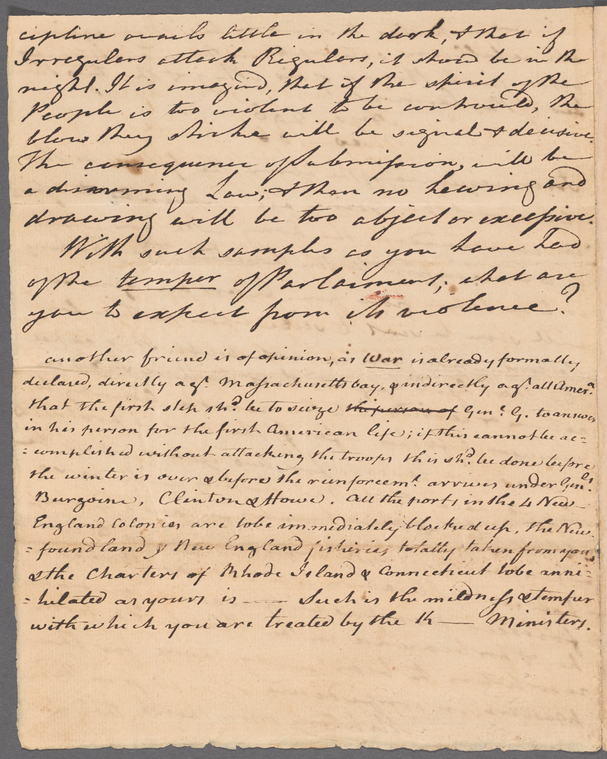 cipline avails little in the dark, & that if
Irregulars attack Regulars, it shoud be in the
night. It is imagind, that if the spirit of the
People is too violent to be controuled, the
blow they strike will be signal & decisive.
The consequence of submission, will be
a disarming Law; & then no hewing and
drawing will be too abject or excessive.
With such samples as you have had
of the temper of Parliament; what are
you to expect from its violence?
another friend is of opinion, as War is already formally
declared, directly agt. Massachusetts bay, & indirectly agt. all Amera.
that the first step shd. be to seize the person of Genl. G. to answer
in his person for the first American life; if this cannot be ac=
=complished without attacking the troops this shd. be done before
the winter is over & before the reinforcemt. arrives under Genls.
Burgoine, Clinton & Howe. All the ports in the 4 New
England Colonies are to be immediately blocked up, the New=
=foundland & New England fisheries totally taken from you,
& the Charters of Rhode Island & Connecticut to be anni=
=hilated as yours is —— Such is the mildness & temper
with which you are treated by the K —— Ministers.